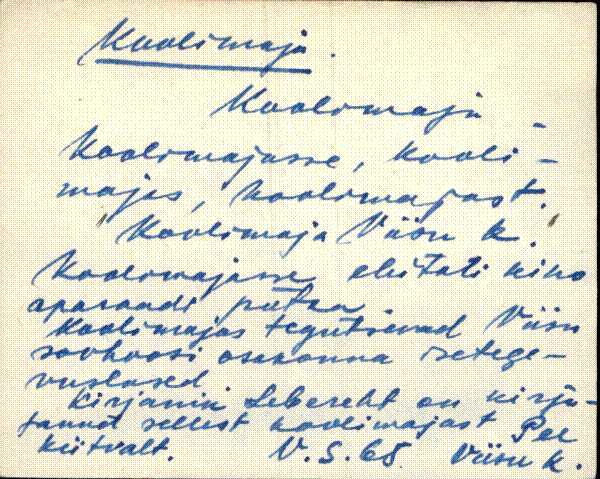 Koolimaja.
Koolimaju -
Koolimajasse, kooli-
majas, koolimajast.
Koolimaja Viisu k.
Koolimajasse ehitati kino
aparaadi
Koolimajas tegutsevad Viisu
sovhoosi osakonna isetege-
vuslased
Kirjanik Leberecht on kirju-
tanud sellest koolimajast Pee
kiitvalt. V. S. 68 Viisu k.